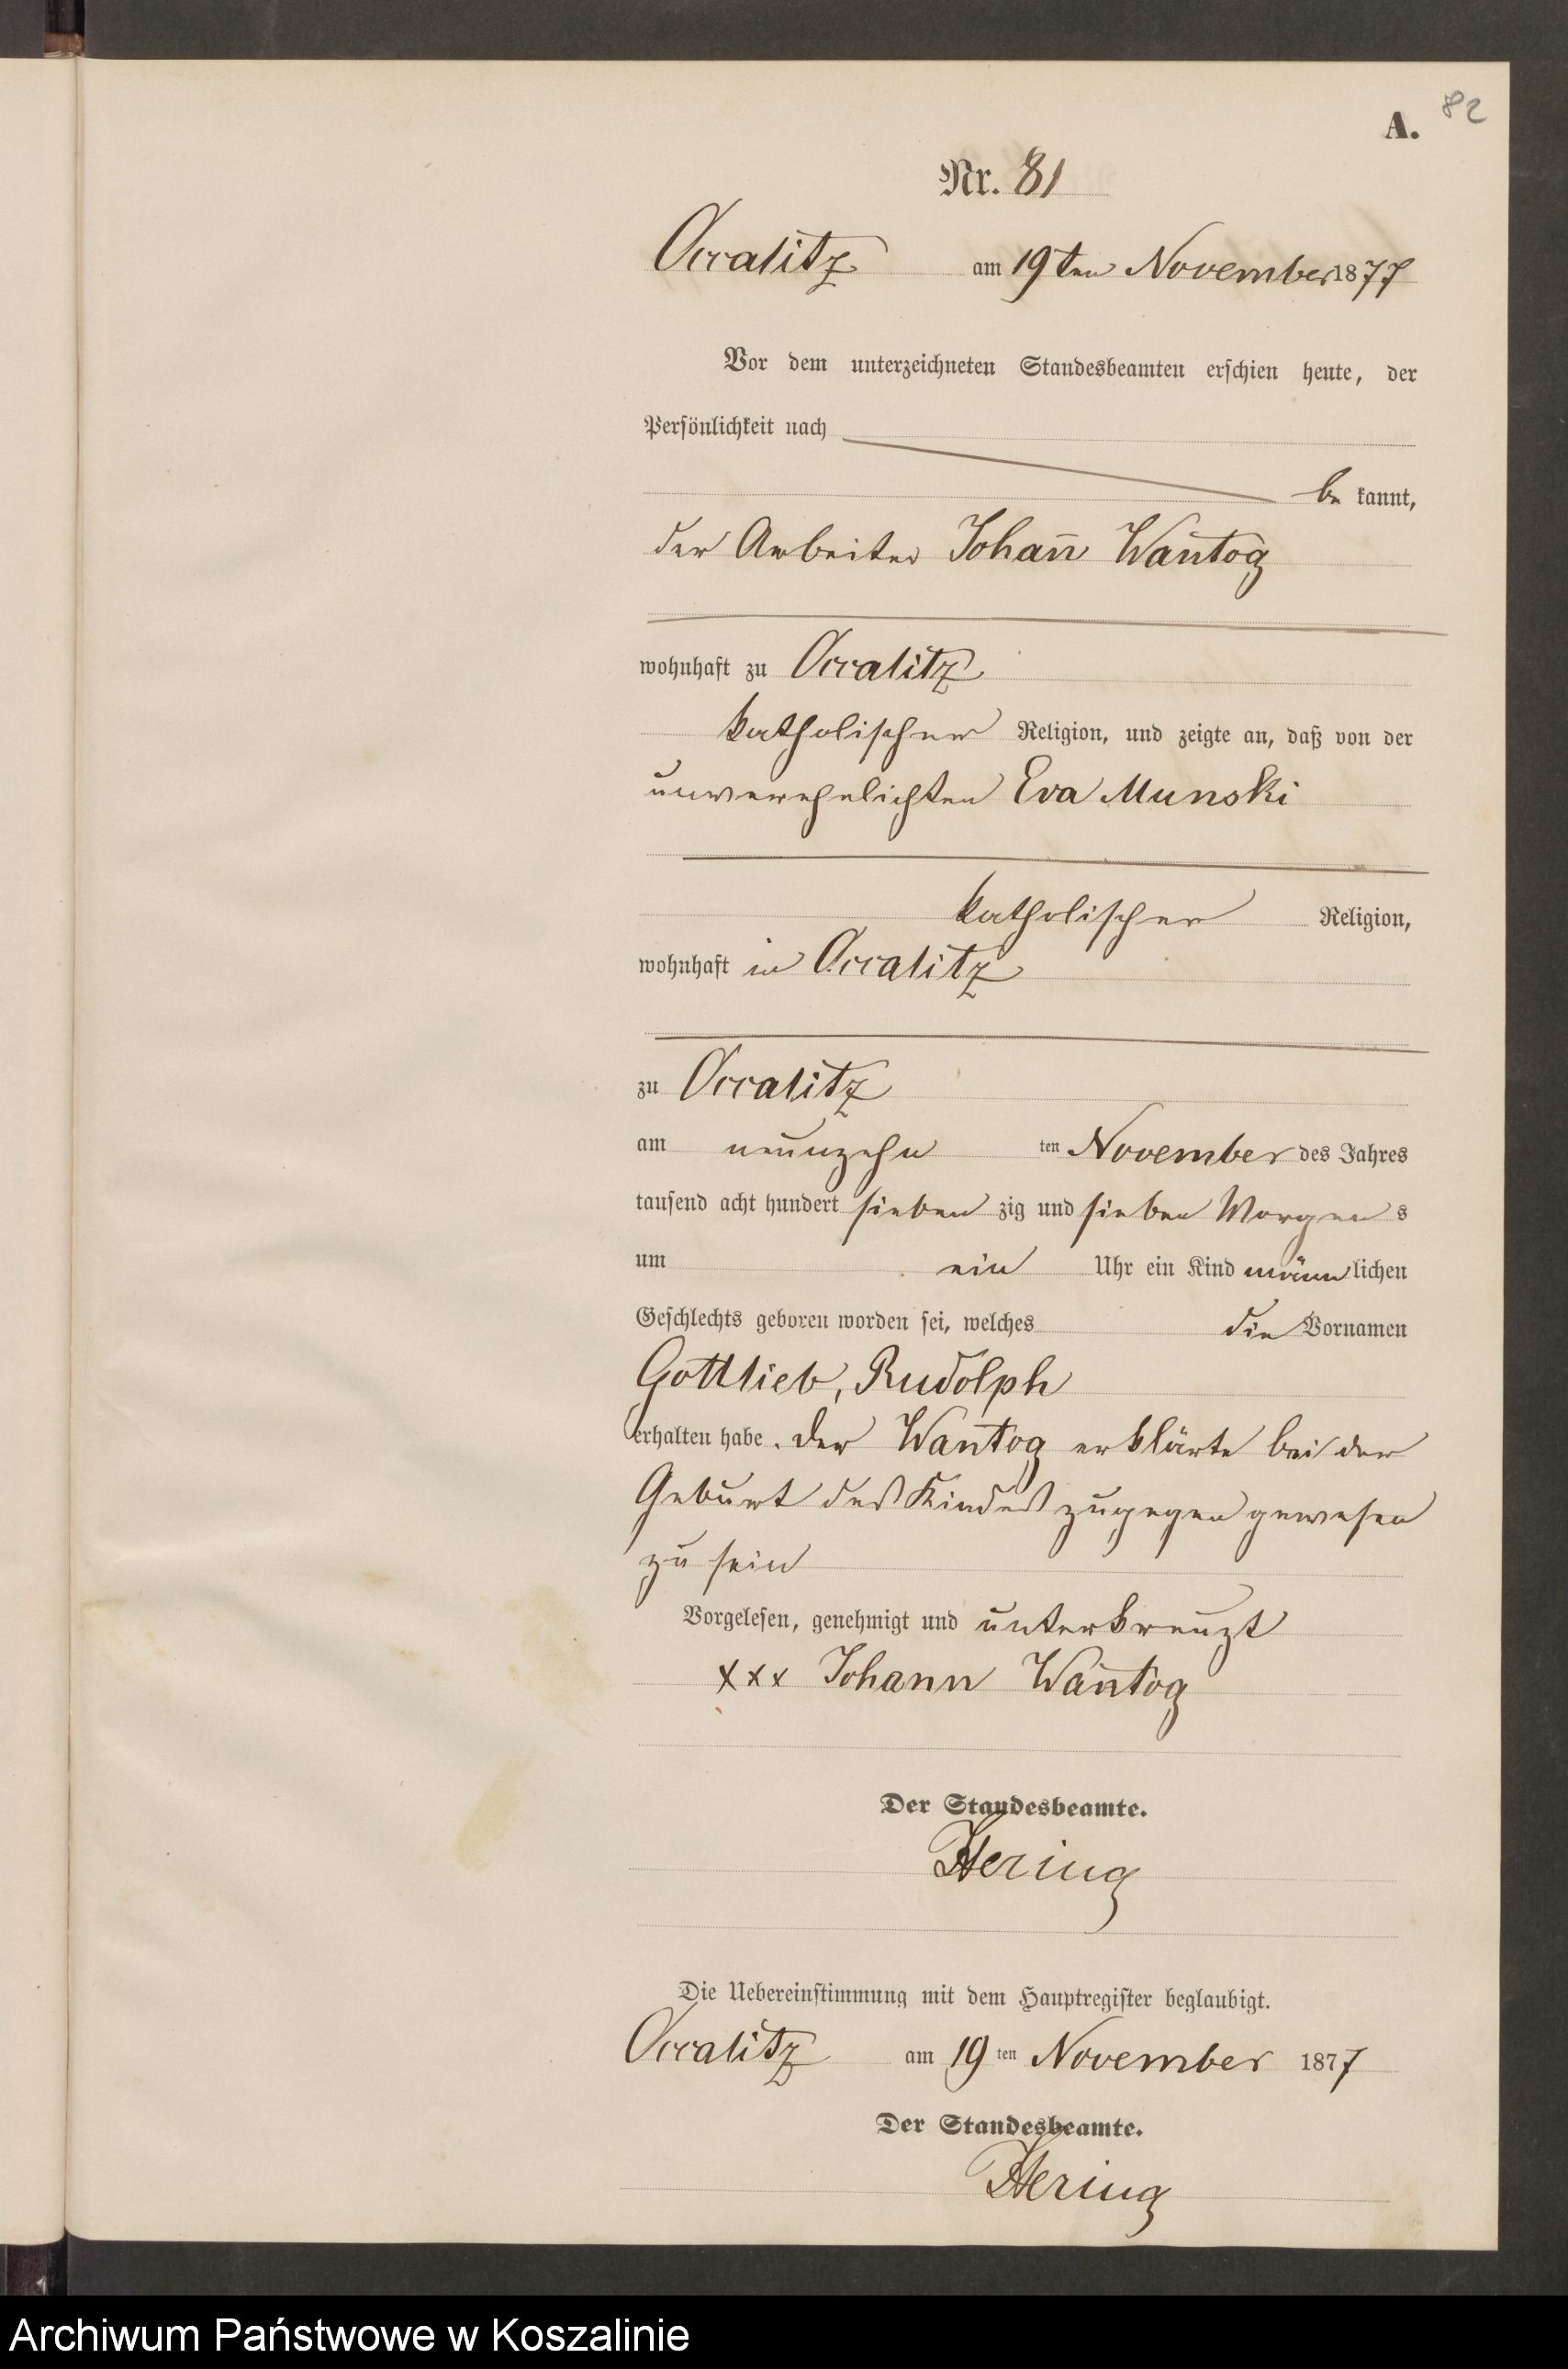 82
A.
Nr. 81
Occalitz am 19ten November 1877
Vor dem unterzeichneten Standesbeamten erschien heute, der
Persönlichkeit nach
be kannt,
der Arbeiter Johan̄ Wantog
wohnhaft zu Occalitz
katholischer Religion, und zeigte an, daß von der
unverehelichten Eva Munski
katholischer Religion,
wohnhaft in Occalitz
zu Occalitz
am neunzehn ten November des Jahres
tausend acht hundert sieben zig und sieben Morgen s
um ein Uhr ein Kind männ lichen
Geschlechts geboren worden sei, welches die Vornamen
Gottlieb, Rudolph
erhalten habe. Der Wantog erklärte bei der
Geburt des Kindes zugegen gewesen
zu sein
Vorgelesen, genehmigt und unterkreuzt
xxx Johann Wantog
Der Standesbeamte.
Hering
Die Uebereinstimmung mit dem Hauptregister beglaubigt.
Occalitz am 19 ten November 1877
Der Standesbeamte.
Hering
Archiwum Państwowe w Koszalinie